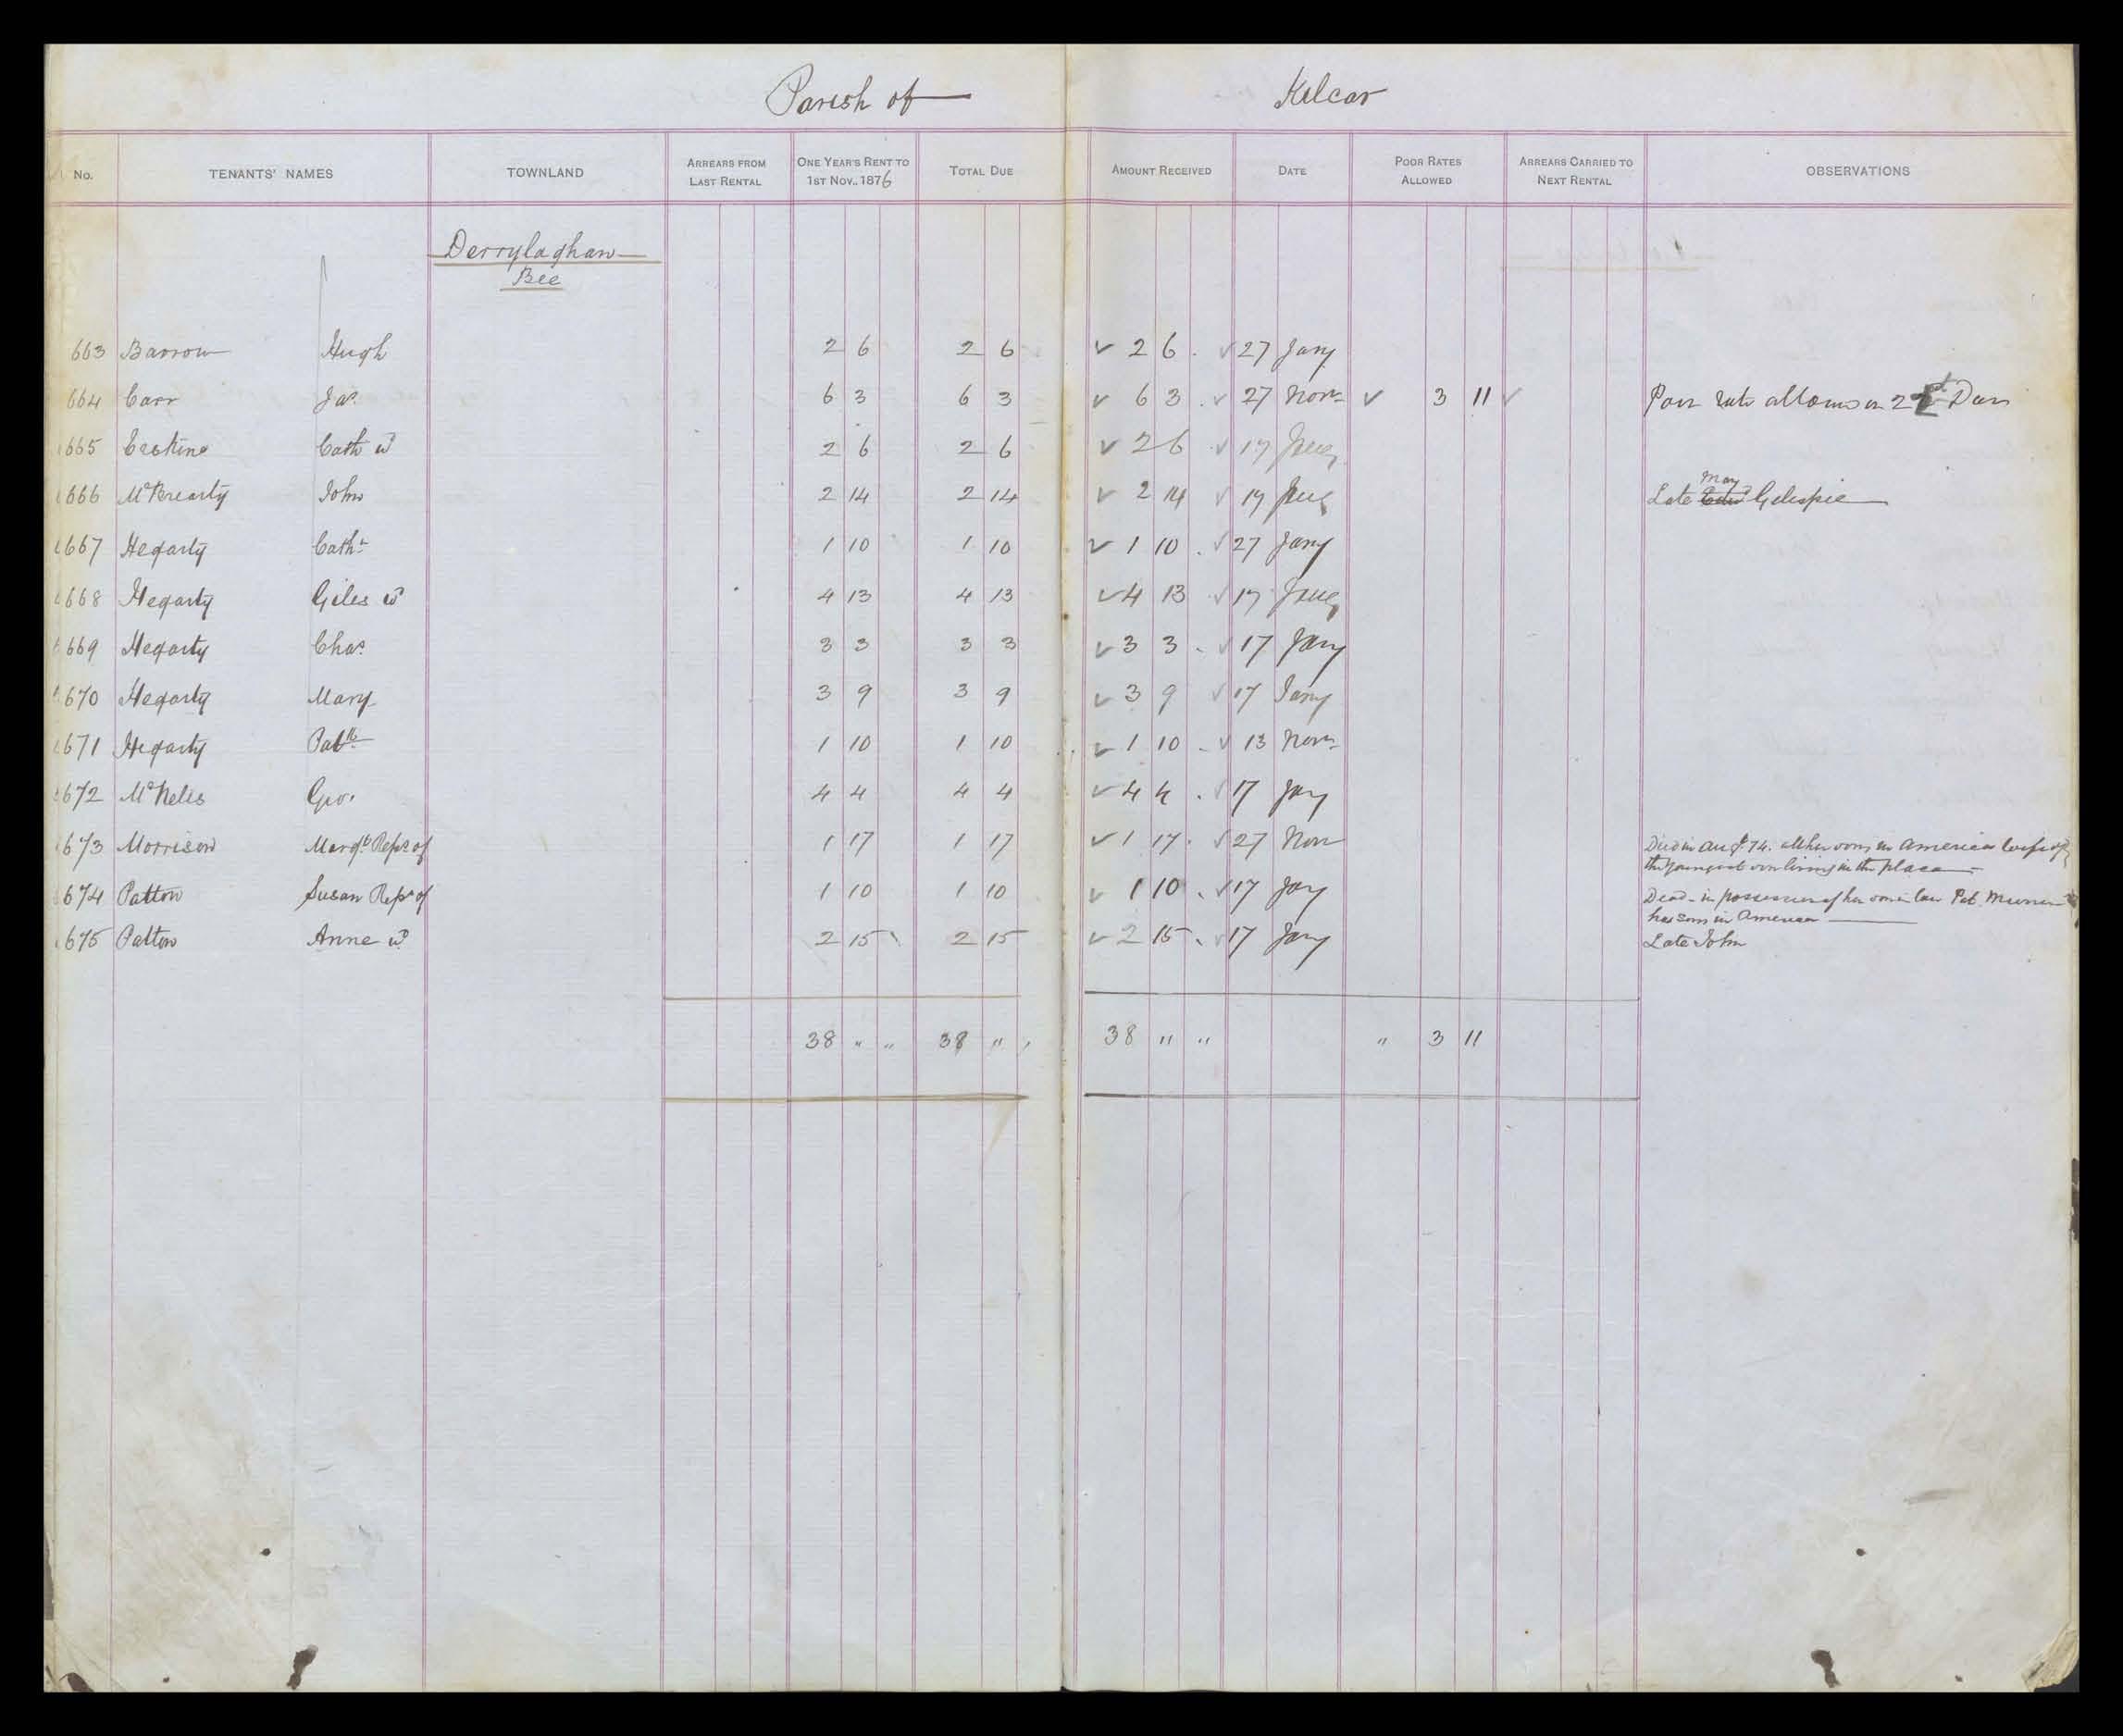 Parish of Kilcar
No. TENANTS' NAMES TOWNLAND ARREARS FROM LAST RENTAL ONE YEAR'S RENT TO 1ST NOV., 1876 TOTAL DUE AMOUNT RECEIVED DATE POOR RATES ALLOWED ARREARS CARRIED TO NEXT RENTAL OBSERVATIONS
Derrylaghan
Bee
663 Barron Hugh 2 6 2 6 ✓ 2 6 . ✓ 27 Jany
664 Carr Jas. 6 3 6 3 ✓ 6 3 . ✓ 27 Novr ✓ 3 11 ✓ Poor rate allowed on 2
665 Erskine Cath wd 2 6 2 6 ✓ 2 6 ✓ 17 Jany
666 McBrearty John 2 14 2 14 ✓ 2 14 ✓ 17 Jany Late May Gilespie
667 Hegarty Cathr 1 10 1 10 ✓ 1 10 . ✓ 27 Jany
668 Hegarty Giles wd 4 13 4 13 ✓ 4 13 ✓ 17 Jany
669 Hegarty Chas. 3 3 3 3 ✓ 3 3 . ✓ 17 Jany
670 Hegarty Mary 3 9 3 9 ✓ 3 9 ✓ 17 Jany
671 Hegarty Patk 1 10 1 10 ✓ 1 10 . ✓ 13 Novr
672 McNelis Geo. 4 4 4 4 ✓ 4 4 . ✓ 17 Jany
673 Morrison Margt Reps of 1 17 1 17 ✓ 1 17 . ✓ 27 Nov Died in Augt 74. all her sons in America wife of
the youngest son living in the place
674 Patton Susan Reps of 1 10 1 10 ✓ 1 10 . ✓ 17 Jany Dead - in possession of her son in law Pat
her sons in America
675 Patton Anne wd 2 15 2 15 ✓ 2 15 . ✓ 17 Jany Late John
38 " " 38 " " 38 " " " 3 11